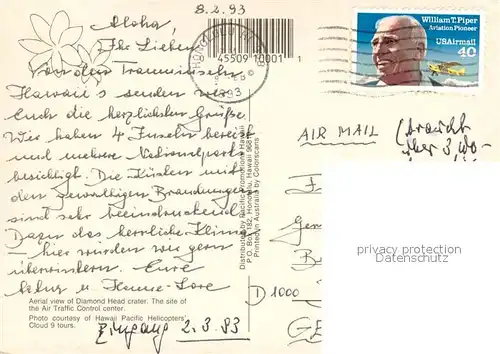 8.2.93
Aloha,
Ihr Lieben
Von den Trauminseln
Hawaii's senden wir
Euch die herzlichsten Grüße.
Wir haben 4 Inseln bereist
und mehrere Nationalparks
besichtigt. Die Küsten mit
den gewaltigen Brandungen
sind sehr beeindruckend.
Dazu das herrliche Klima
– hier würden wir gern
überwintern. Eure
u Hanne-Lore
Aerial view of Diamond Head crater. The site of
the Air Traffic Control center.
Photo courtesy of Hawaii Pacific Helicopters'
Cloud 9 tours.
Eingang 2.3.93
45509 10001 1
HONOLULU
1993
Distributed by Pacific Promotions Hawaii
P.O. Box 182, Honolulu, Hawaii 96810
Printed in Australia by Colorscans.
William T. Piper
Aviation Pioneer
USAirmail
40
AIR MAIL
(braucht
über 3 Wo-
privacy protection
Datenschutz
D 1000